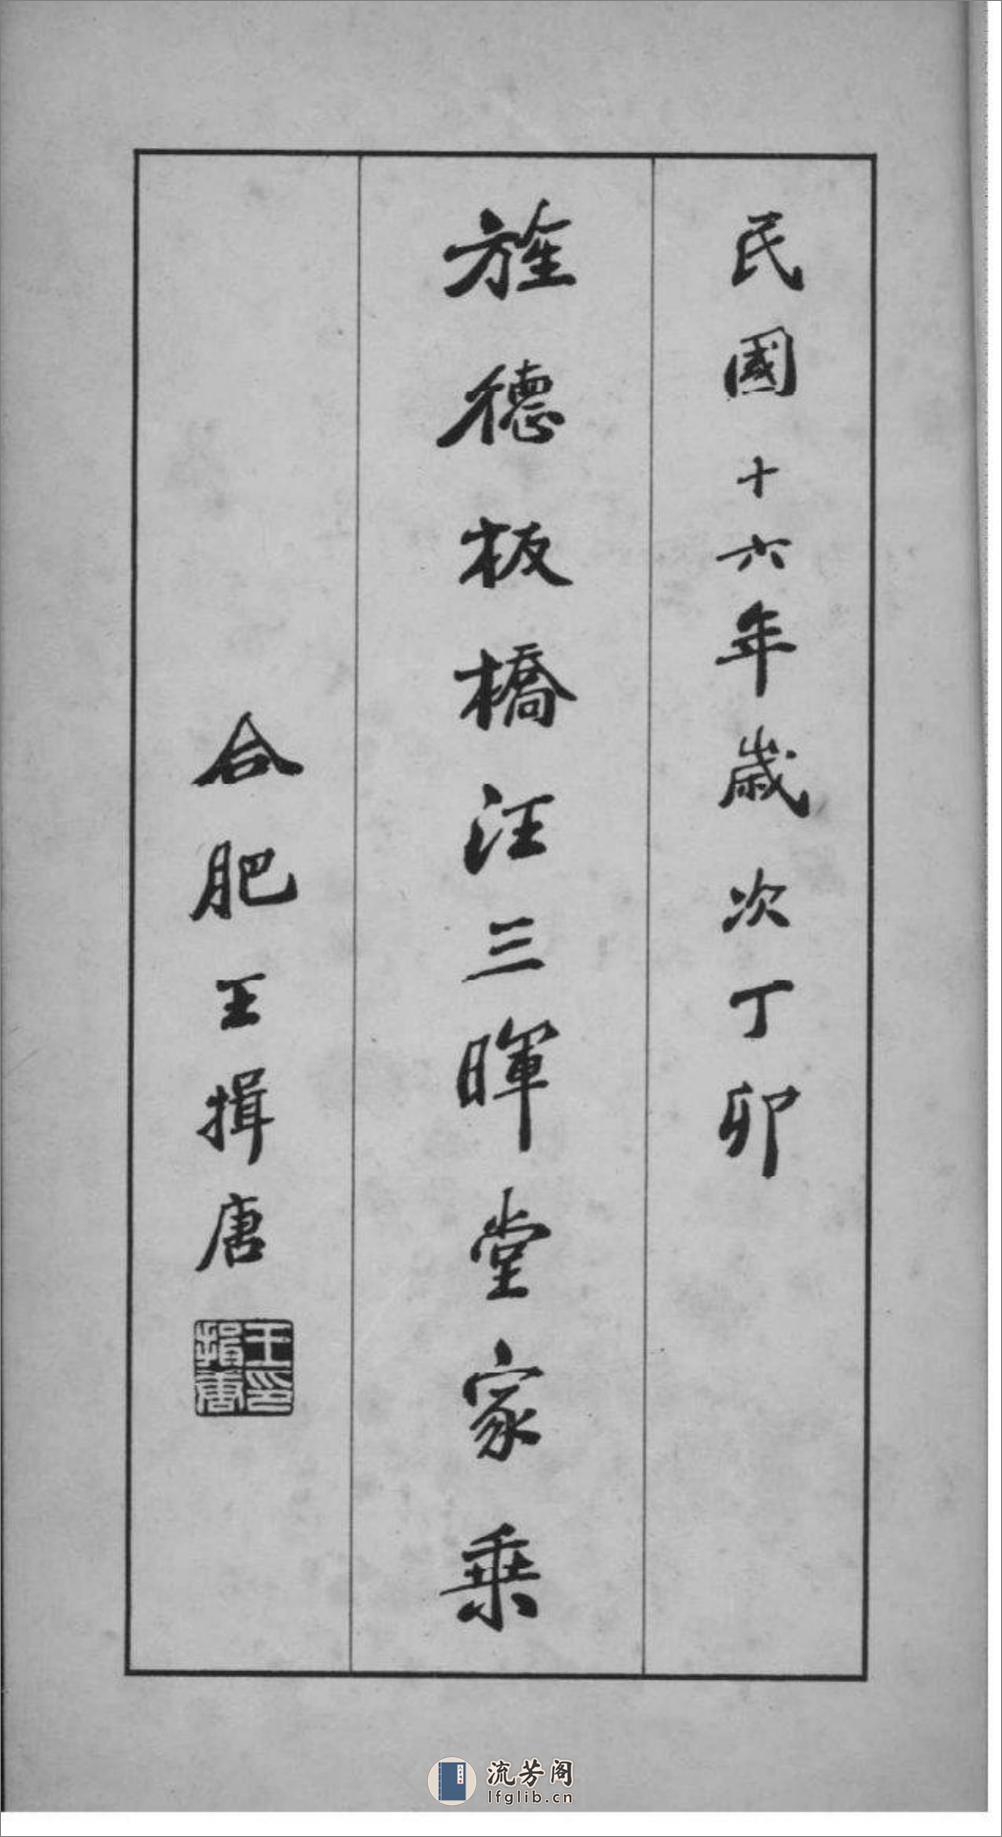 民國十六年歲次丁卯
旌德板橋汪三暉堂家乘
合肥王揖唐
王揖唐印
流芳阁
lfglib.cn